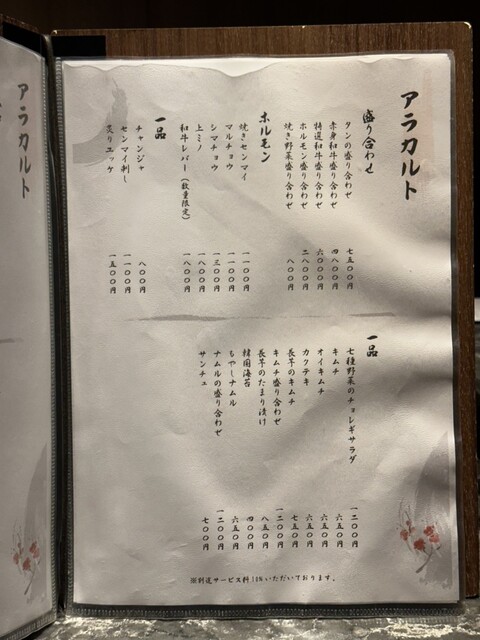 アラカルト
盛り合わせ
タンの盛り合わせ 七五〇〇円
赤身和牛盛り合わせ 四八〇〇円
特選和牛盛り合わせ 六〇〇〇円
ホルモン盛り合わせ 二八〇〇円
焼き野菜盛り合わせ 八〇〇円
ホルモン
焼きセンマイ 一一〇〇円
マルチョウ 一一〇〇円
シマチョウ 一三〇〇円
上ミノ 一八〇〇円
和牛レバー(数量限定) 一八〇〇円
一品
チャンジャ 八〇〇円
センマイ刺し 一一〇〇円
炙りユッケ 一五〇〇円
一品
七種野菜のチョレギサラダ 一二〇〇円
キムチ 六五〇円
オイキムチ 六五〇円
カクテキ 六五〇円
長芋のキムチ 七五〇円
キムチ盛り合わせ 一二〇〇円
長芋のたまり漬け 八五〇円
韓国海苔 四〇〇円
もやしナムル 六五〇円
ナムルの盛り合わせ 一二〇〇円
サンチュ 七〇〇円
※別途サービス料10%いただいております。
アラカルト